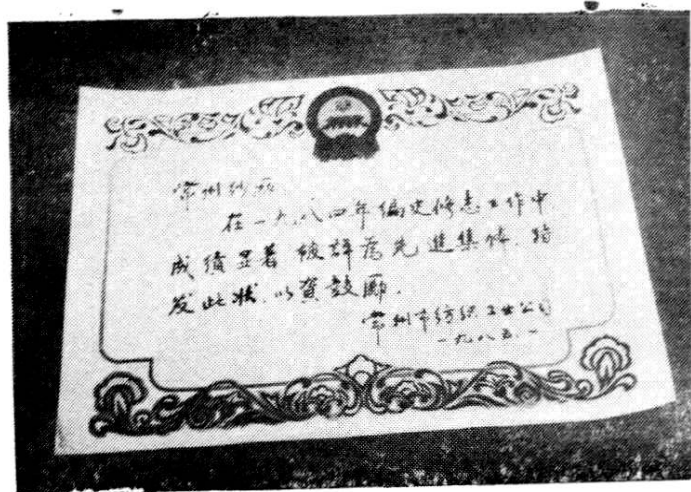 常州纱厂
在一九八四年编史修志工作中
成绩显著 被评为先進集体、特
发此状、以资鼓励.
常州市纺织工业公司
一九八五.一